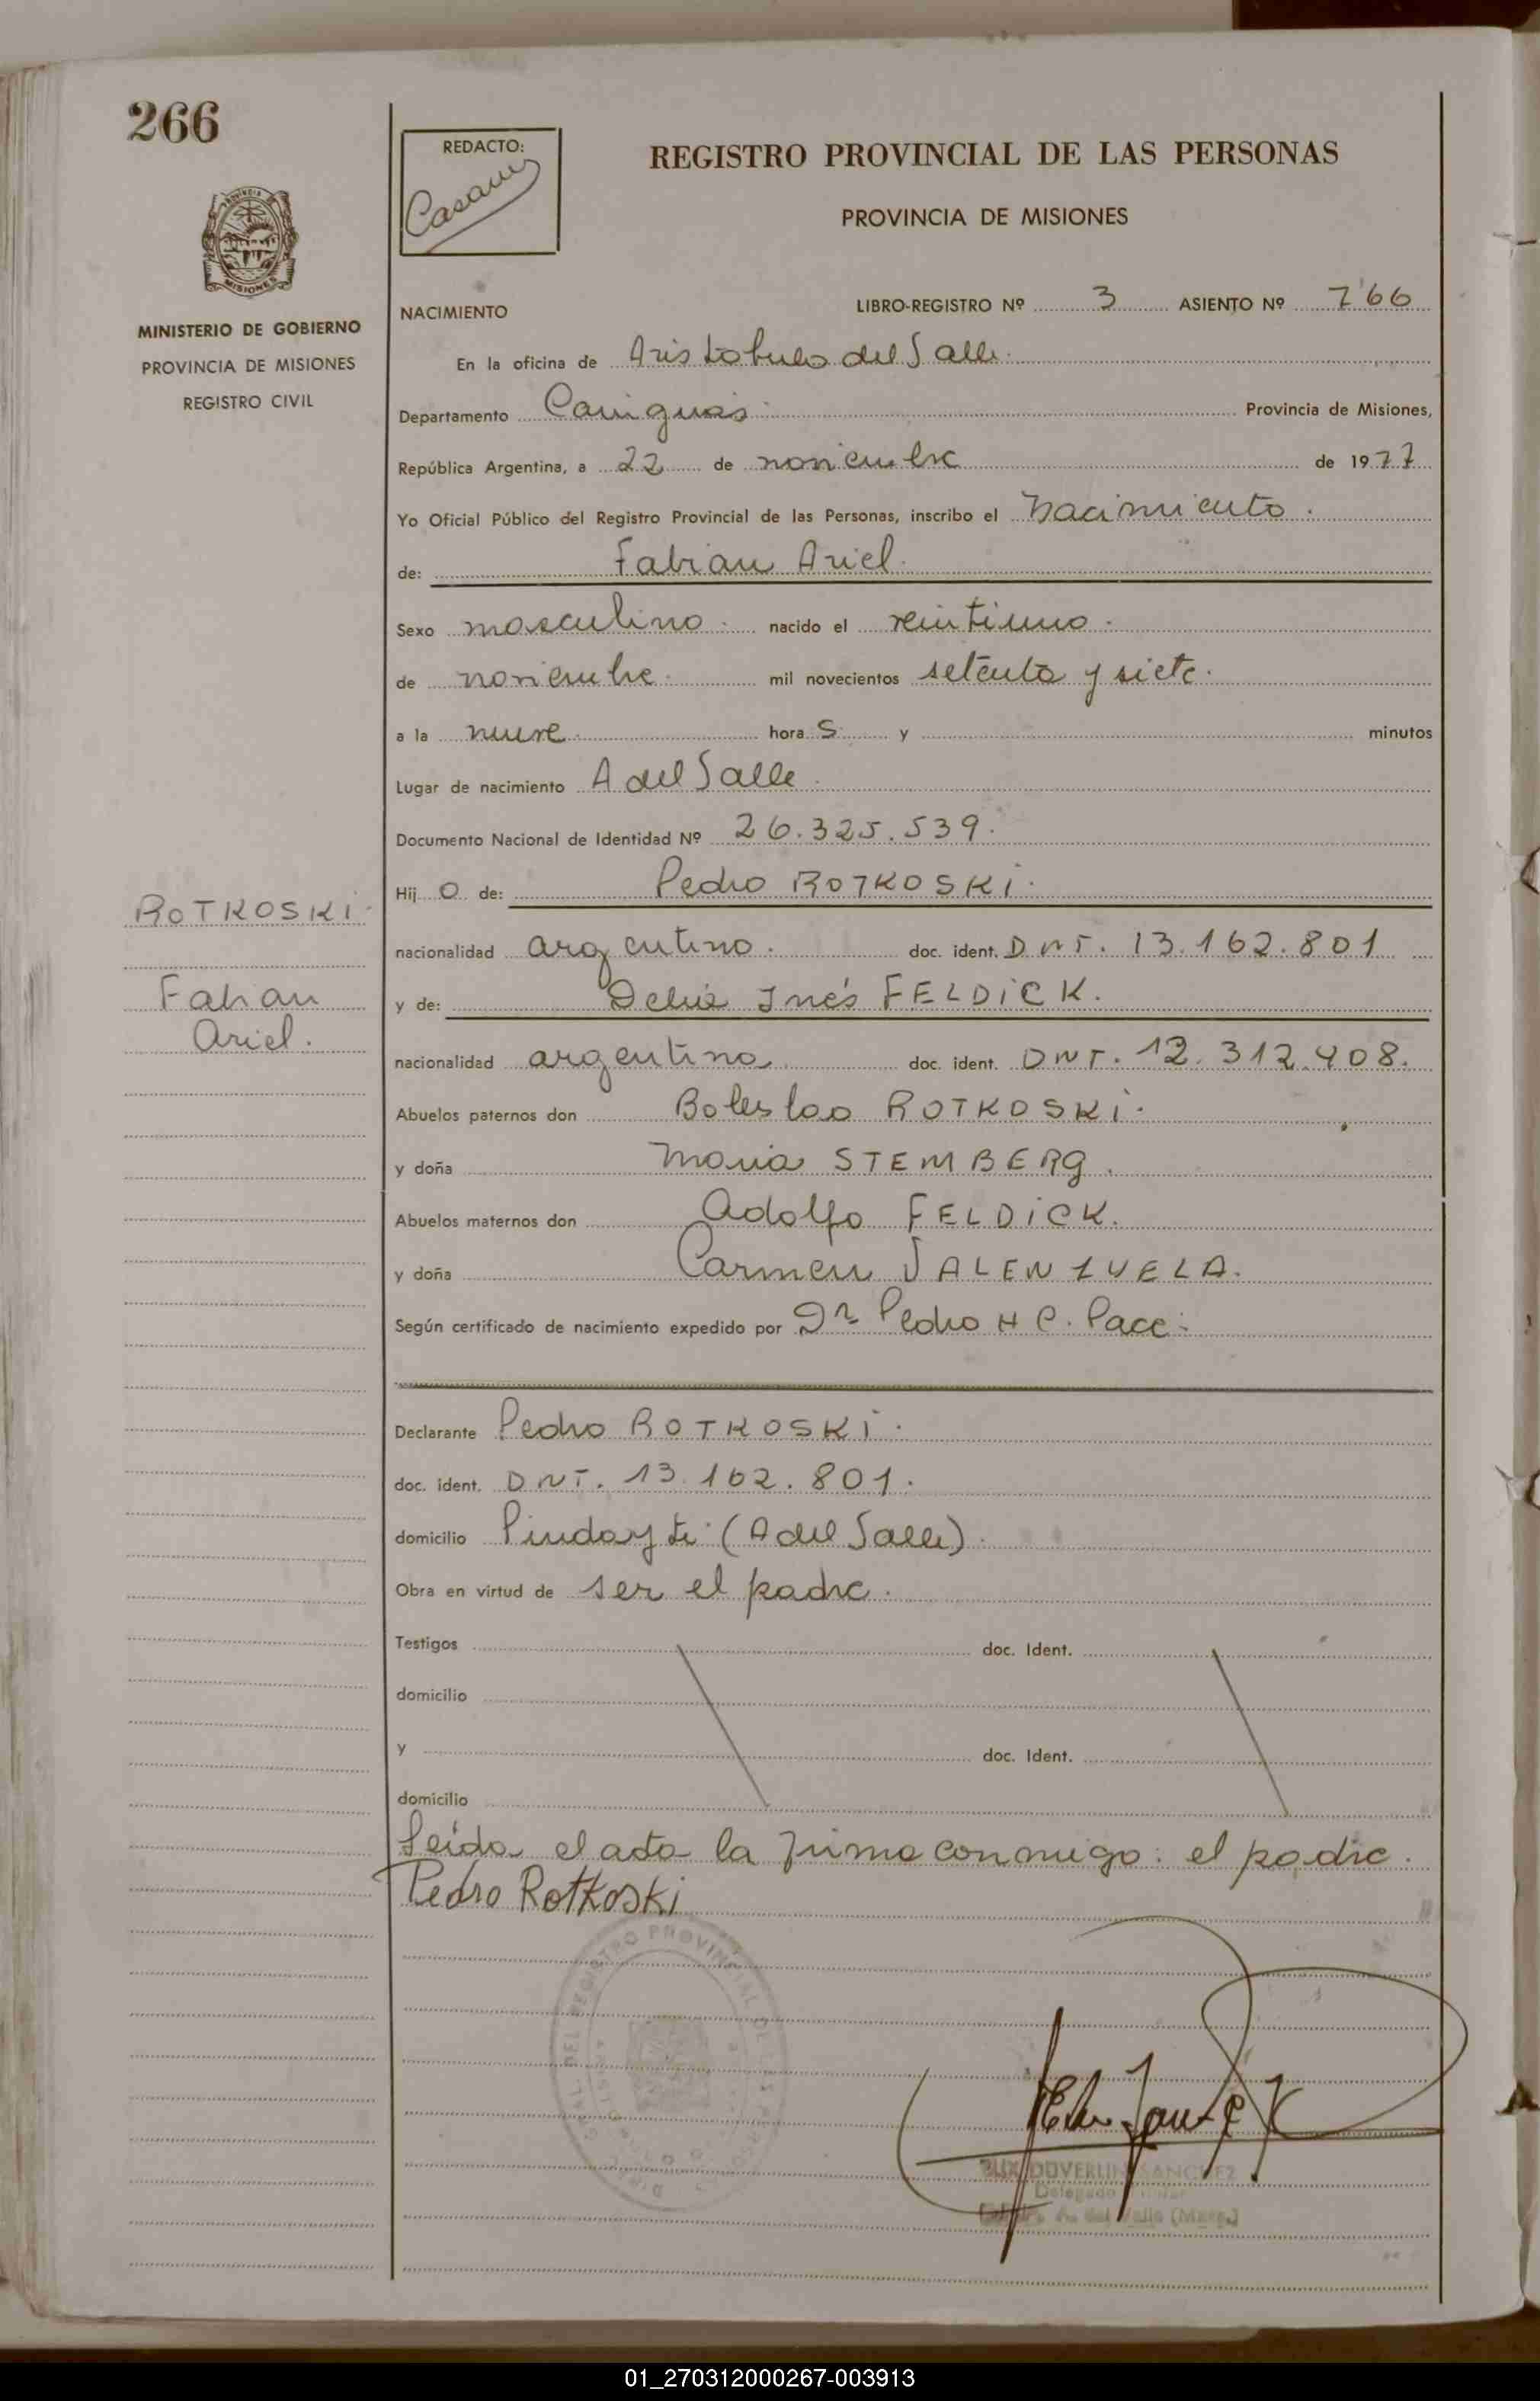 266
REDACTO:
Casam
REGISTRO PROVINCIAL DE LAS PERSONAS
PROVINCIA DE MISIONES
MISIONES
MINISTERIO DE GOBIERNO
PROVINCIA DE MISIONES
REGISTRO CIVIL
NACIMIENTO
LIBRO-REGISTRO Nº 3 ASIENTO Nº 766
En la oficina de Aristobulo del Valle.
Departamento Cainguás Provincia de Misiones,
República Argentina, a 22 de noviembre de 1977
Yo Oficial Público del Registro Provincial de las Personas, inscribo el Nacimiento.
de: Fabian Ariel.
Sexo masculino. nacido el veintiuno.
de noviembre. mil novecientos setenta y siete.
a la nueve hora s y minutos
Lugar de nacimiento A del Valle.
Documento Nacional de Identidad Nº 26.325.539.
Hij o de: Pedro ROTKOSKI.
nacionalidad argentino. doc. ident. DNI. 13.162.801
y de: Delia Inés FELDICK.
nacionalidad argentina doc. ident. DNI. 12.312.408.
Abuelos paternos don Boleslao ROTKOSKI.
y doña Maria STEMBERG.
Abuelos maternos don Adolfo FELDICK.
y doña Carmen VALENZUELA.
Según certificado de nacimiento expedido por Dr Pedro H C. Pace.
ROTKOSKI
Fabian
Ariel.
Declarante Pedro ROTKOSKI.
doc. ident. DNI. 13.162.801.
domicilio Pindayti (A del Valle).
Obra en virtud de ser el padre.
Testigos doc. Ident.
domicilio
y doc. Ident.
domicilio
Leída el acta la firma conmigo: el padre.
Pedro Rotkoski
DUVERLIN SANCHEZ
Delegado
A. del Valle (Mnes.)
01_270312000267-003913